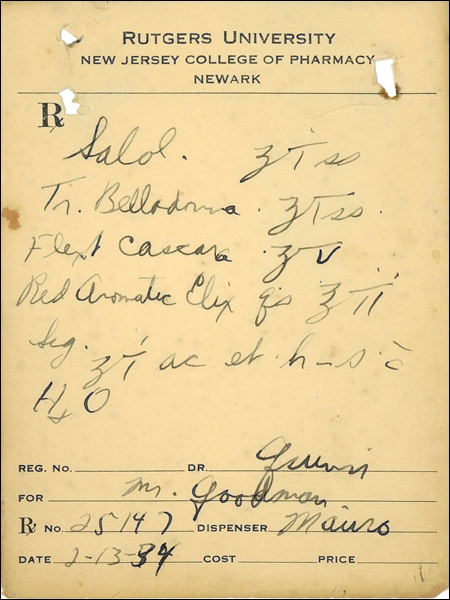 RUTGERS UNIVERSITY
NEW JERSEY COLLEGE OF PHARMACY
NEWARK
℞
Salol. ʒ i ss
Tr. Belladonna. ʒ i ss.
Flext Cascara ʒ v
Red Aromatic Elix qs ℥ ii
Sig. ʒ i ac et h-s. c̄
H₂O
REG. NO. DR.
FOR Mr. Goodman
℞ NO. 25147 DISPENSER Mauro
DATE 2-13-34 COST PRICE